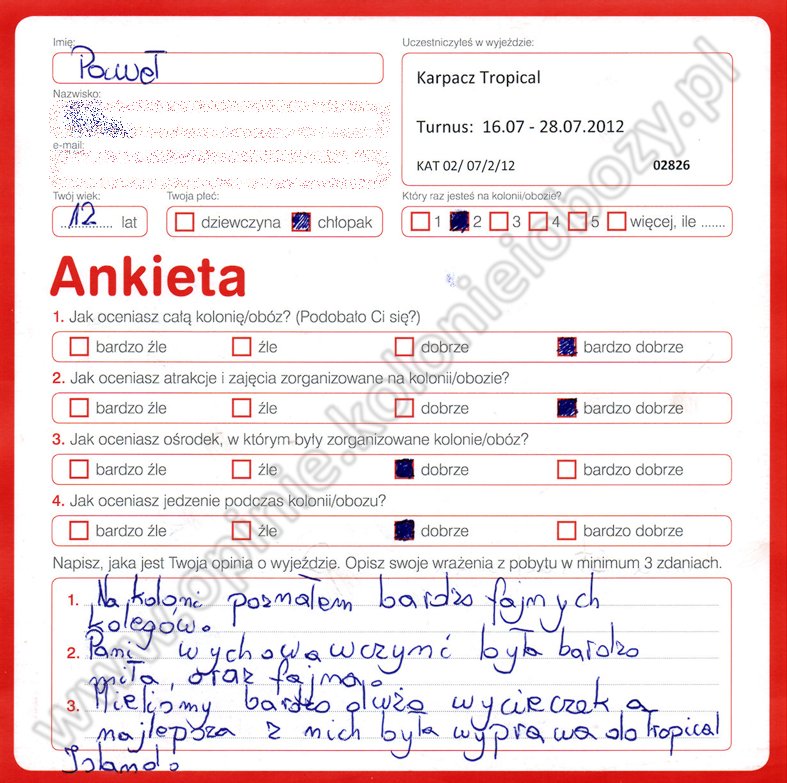 Imię:
Paweł
Nazwisko:
e-mail:
Twój wiek:
12 lat
Twoja płeć:
dziewczyna chłopak
Uczestniczyłeś w wyjeździe:
Karpacz Tropical
Turnus: 16.07 - 28.07.2012
KAT 02/ 07/2/12 02826
Który raz jesteś na kolonii/obozie?
1 2 3 4 5 więcej, ile .......
Ankieta
1. Jak oceniasz całą kolonię/obóz? (Podobało Ci się?)
bardzo źle źle dobrze bardzo dobrze
2. Jak oceniasz atrakcje i zajęcia zorganizowane na kolonii/obozie?
bardzo źle źle dobrze bardzo dobrze
3. Jak oceniasz ośrodek, w którym były zorganizowane kolonie/obóz?
bardzo źle źle dobrze bardzo dobrze
4. Jak oceniasz jedzenie podczas kolonii/obozu?
bardzo źle źle dobrze bardzo dobrze
Napisz, jaka jest Twoja opinia o wyjeździe. Opisz swoje wrażenia z pobytu w minimum 3 zdaniach.
1. Na koloni poznałem bardzo fajnych
kolegów.
2. Pani wychowawczynć była bardzo
miła, oraz fajna.
3. Mieliśmy bardzo dużo wycieczek a
najlepsza z nich była wyprawa do Tropical
Island.
www.opinie.kolonieiobozy.pl